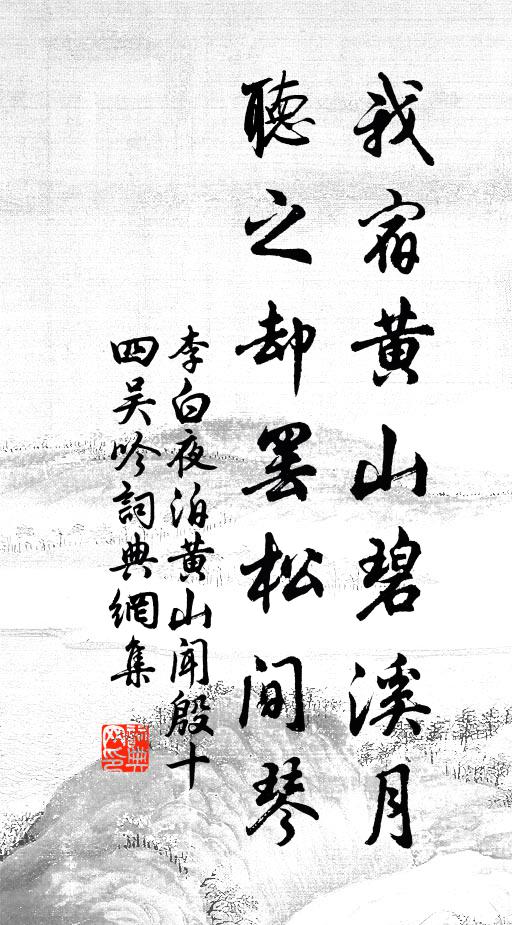 我宿黃山碧溪月
聽之却罷松間琴
李白夜泊黃山聞殷十
四吳吟詞典網集